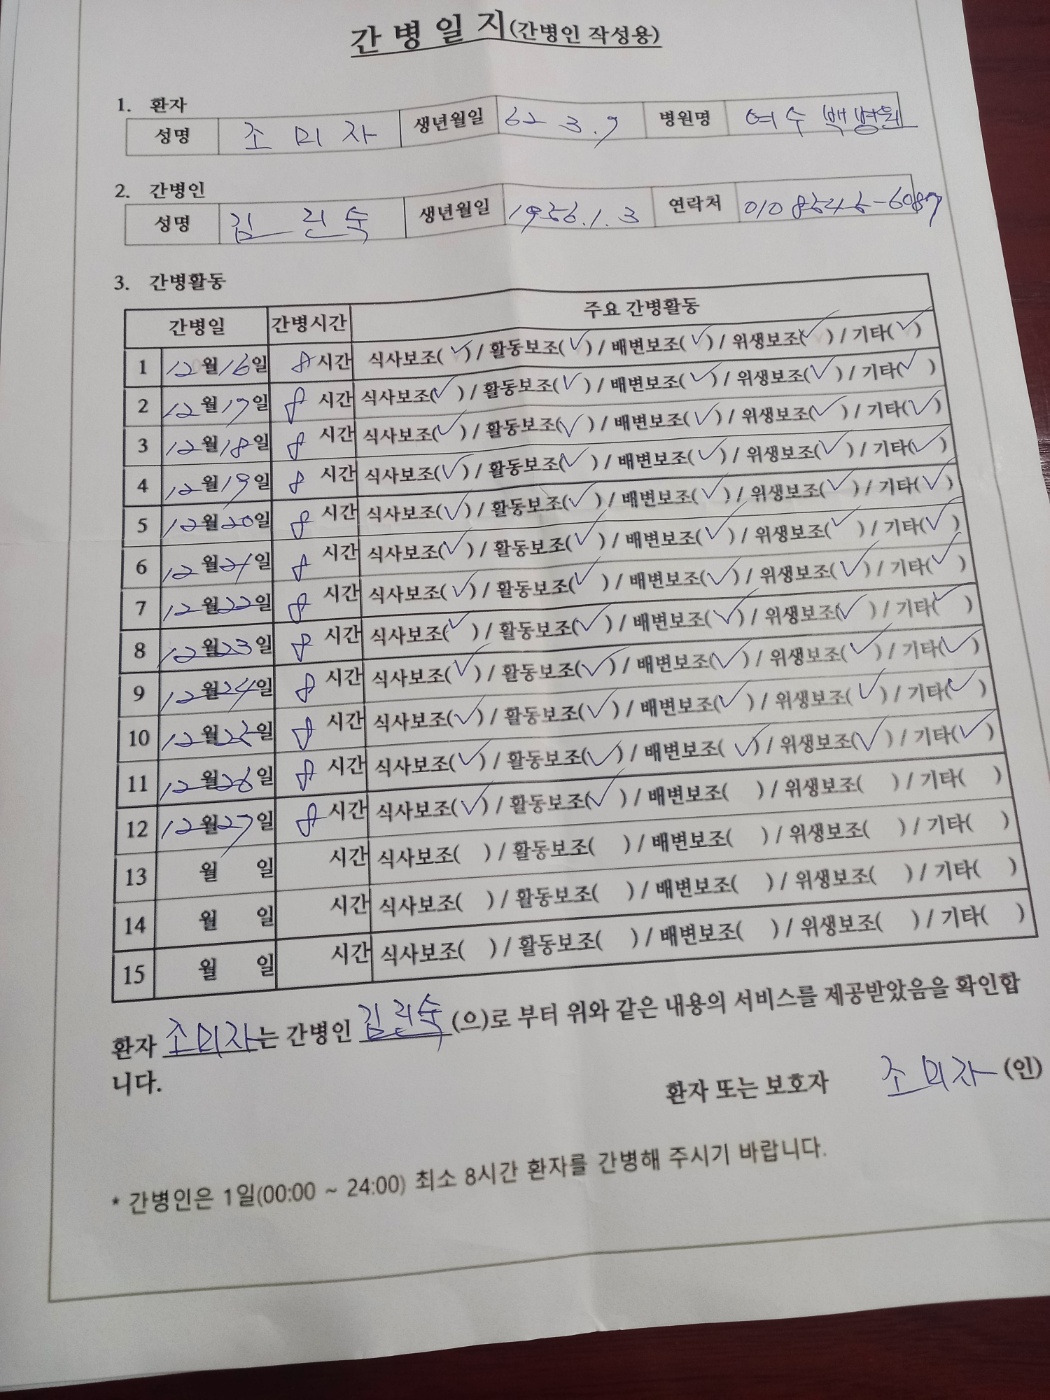 간 병 일 지(간병인 작성용)
1. 환자
성명 조 미 자 생년월일 62 3.7 병원명 여수백병원
2. 간병인
성명 김 린 숙 생년월일 1956.1.3 연락처 010 8545-6087
3. 간병활동
간병일 간병시간 주요 간병활동
1 12월16일 8시간 식사보조(✓) / 활동보조(✓) / 배변보조(✓) / 위생보조(✓) / 기타(✓)
2 12월17일 8 시간 식사보조(✓) / 활동보조(✓) / 배변보조(✓) / 위생보조(✓) / 기타(✓)
3 12월18일 8 시간 식사보조(✓) / 활동보조(✓) / 배변보조(✓) / 위생보조(✓) / 기타(✓)
4 12월19일 8 시간 식사보조(✓) / 활동보조(✓) / 배변보조(✓) / 위생보조(✓) / 기타(✓)
5 12월20일 8 시간 식사보조(✓) / 활동보조(✓) / 배변보조(✓) / 위생보조(✓) / 기타(✓)
6 12월21일 8 시간 식사보조(✓) / 활동보조(✓) / 배변보조(✓) / 위생보조(✓) / 기타(✓)
7 12월22일 8 시간 식사보조(✓) / 활동보조(✓) / 배변보조(✓) / 위생보조(✓) / 기타(✓)
8 12월23일 8 시간 식사보조(✓) / 활동보조(✓) / 배변보조(✓) / 위생보조(✓) / 기타(✓)
9 12월24일 8 시간 식사보조(✓) / 활동보조(✓) / 배변보조(✓) / 위생보조(✓) / 기타(✓)
10 12월25일 8 시간 식사보조(✓) / 활동보조(✓) / 배변보조(✓) / 위생보조(✓) / 기타(✓)
11 12월26일 8 시간 식사보조(✓) / 활동보조(✓) / 배변보조(✓) / 위생보조(✓) / 기타(✓)
12 12월27일 8 시간 식사보조(✓) / 활동보조(✓) / 배변보조( ) / 위생보조( ) / 기타( )
13 월 일 시간 식사보조( ) / 활동보조( ) / 배변보조( ) / 위생보조( ) / 기타( )
14 월 일 시간 식사보조( ) / 활동보조( ) / 배변보조( ) / 위생보조( ) / 기타( )
15 월 일 시간 식사보조( ) / 활동보조( ) / 배변보조( ) / 위생보조( ) / 기타( )
환자 조미자는 간병인 김린숙(으)로 부터 위와 같은 내용의 서비스를 제공받았음을 확인합
니다.
환자 또는 보호자 조미자 (인)
* 간병인은 1일(00:00 ~ 24:00) 최소 8시간 환자를 간병해 주시기 바랍니다.